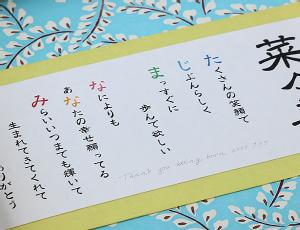 菜
たくさんの笑顔で
じぶんらしく
まっすぐに 歩んで欲しい
なによりも
あなたの幸せ願ってる
みらいいつまでも輝いて
生まれてきてくれて
りがとう
Thank you being born